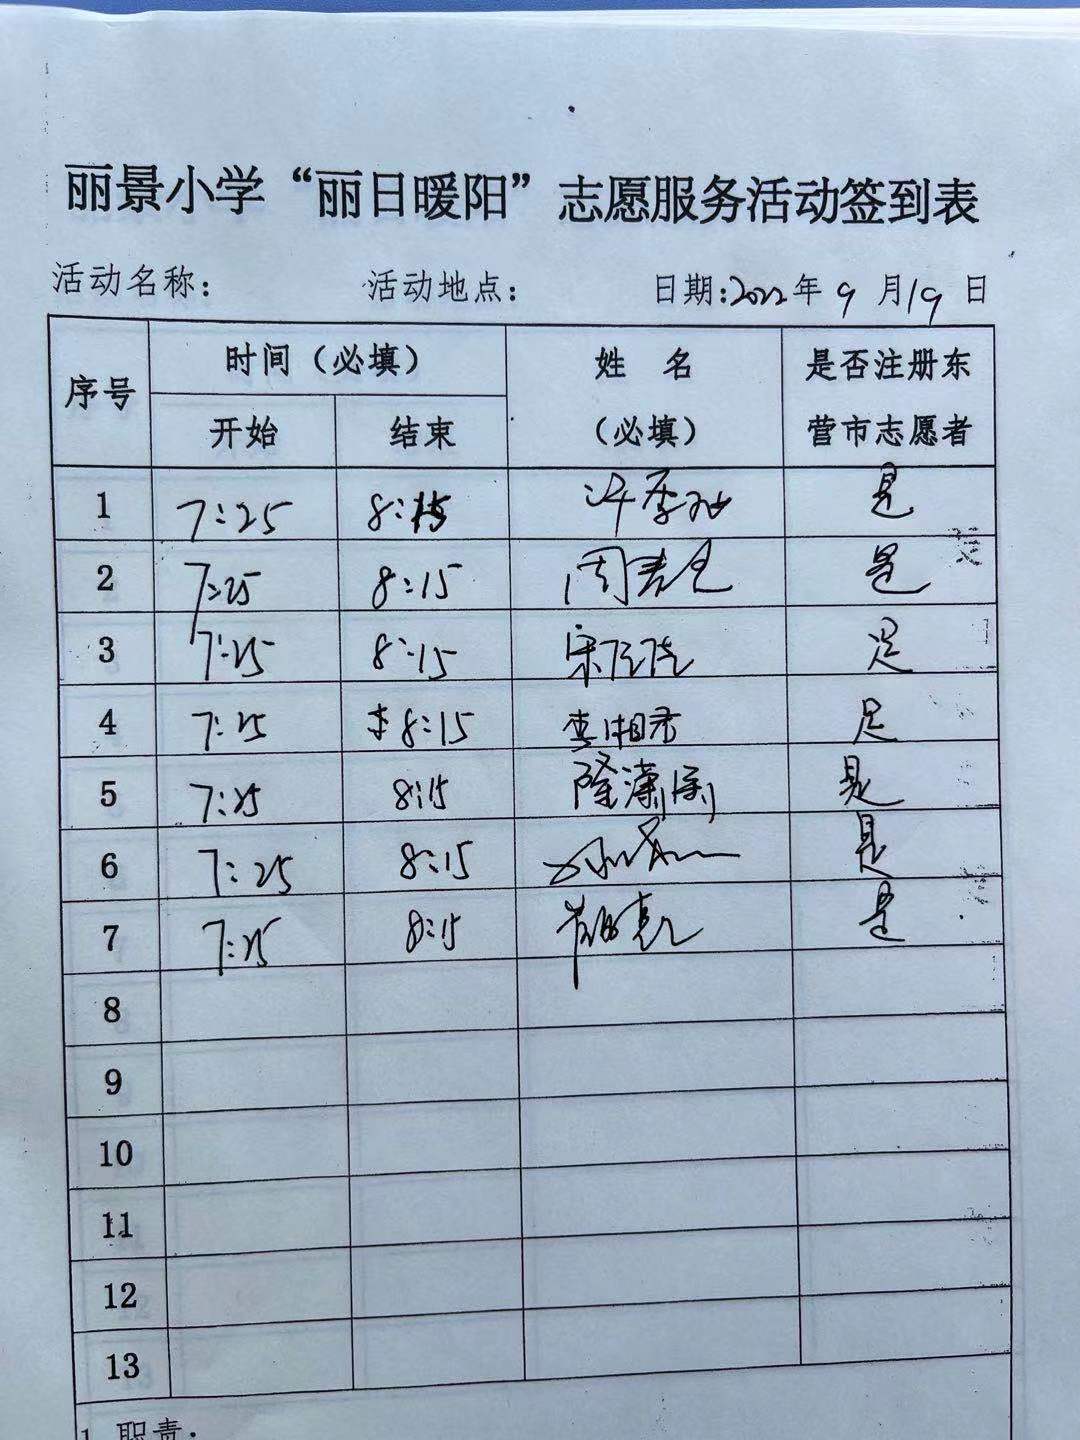 丽景小学“丽日暖阳”志愿服务活动签到表
活动名称： 活动地点： 日期：2022年 9 月 19 日
序号 时间（必填） 姓 名（必填） 是否注册东营市志愿者
开始 结束
1 7:25 8:15 是
2 7:25 8:15 是
3 7:25 8:15 宋 是
4 7:25 8:15 李湘 是
5 7:25 8:15 隆潇潇 是
6 7:25 8:15 是
7 7:25 8:15 是
8
9
10
11
12
13
1.职责：